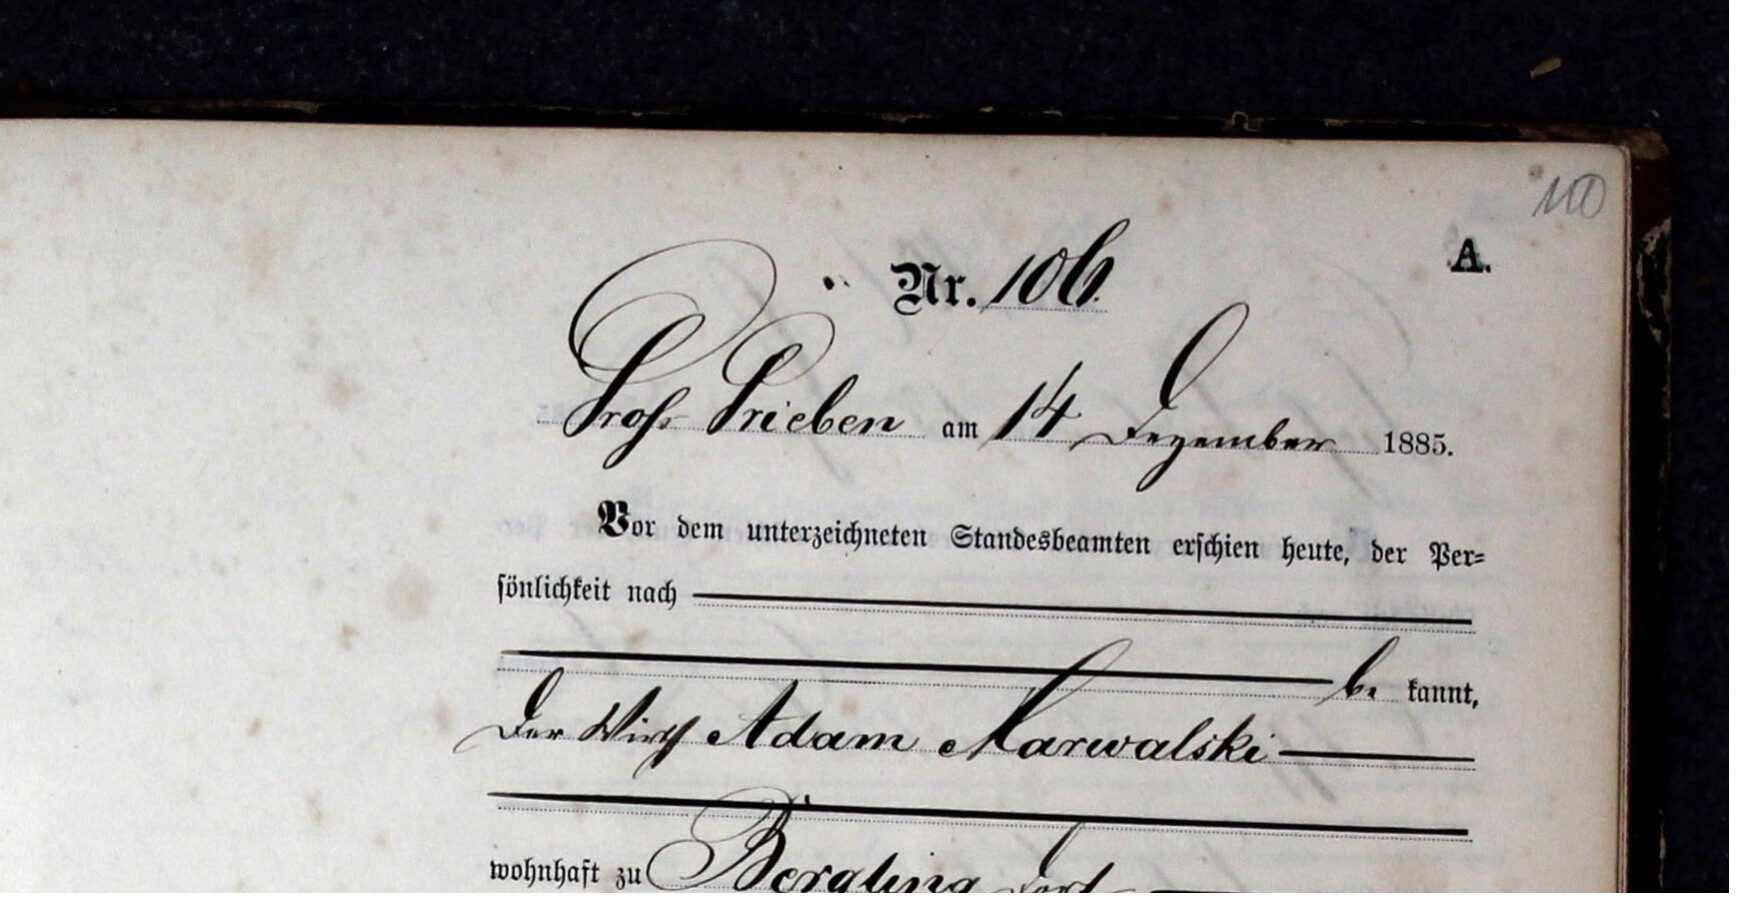 100
A.
Nr. 106.
Gross Grieben am 14 Dezember 1885.
Vor dem unterzeichneten Standesbeamten erschien heute, der Per-
sönlichkeit nach
be kannt,
Der Wirth Adam Marwalski
wohnhaft zu Bergling Dorf